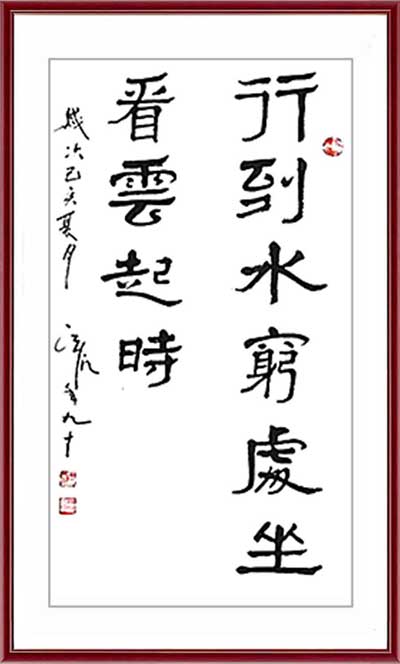 行到水窮處坐
看雲起時
歲次己亥夏月 年九十